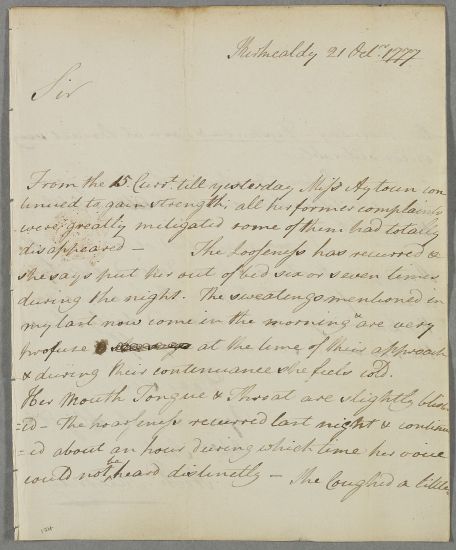 Kirkcaldy 21 Octr. 1777
Sir
From the 15 Curt. till yesterday Miss Aytoun con
tinued to gain strength; all her former complaints
were greatly mitigated some of them had totally
disappeared — The looseness has recurred &
she says put her out of bed six or seven times
during the night. The sweatings mentioned in
my last now come in the morning are very
profuse at the time of their approach
& during their continuance she feels cold.
Her Mouth Tongue & Throat are slightly blist
=ed — The hoarseness recurred last night & continu
=ed about an hour during which time her voice
could not be heard distinctly — She Coughed a little